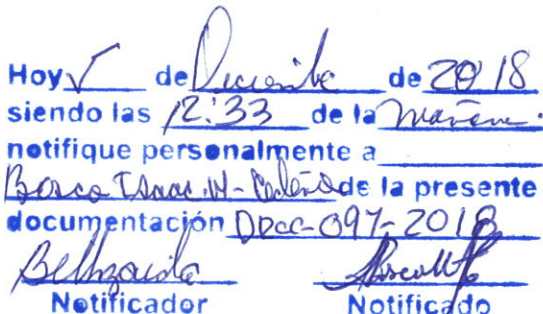 Hoy de Diciembre de 2018
siendo las 12:33 de la mañana.
notifique personalmente a
Bosco Isaac W- Cedeño de la presente
documentación DDCC-097-2018
Notificador Notificado